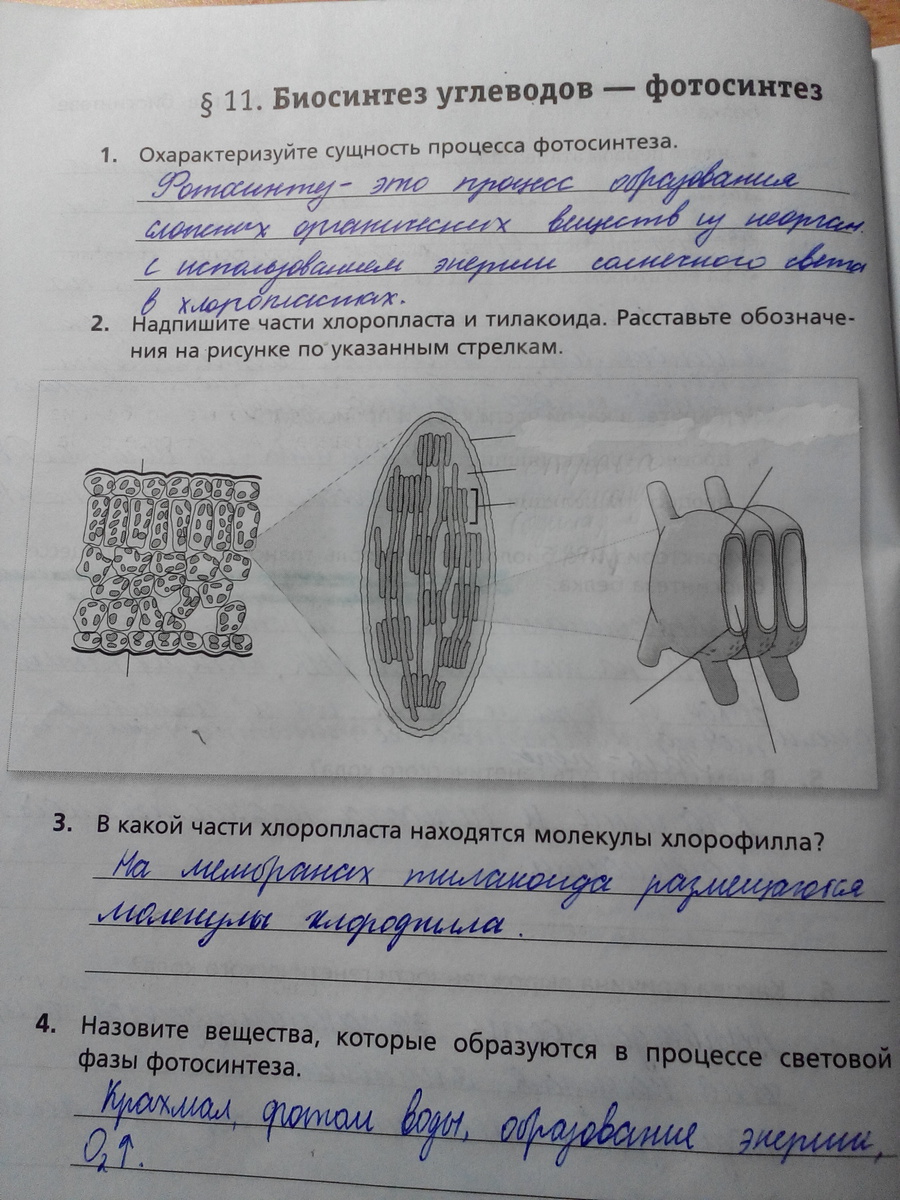 § 11. Биосинтез углеводов — фотосинтез
1. Охарактеризуйте сущность процесса фотосинтеза.
Фотосинтез - это процесс образования
сложных органических веществ из неорган.
с использованием энергии солнечного света
в хлоропластах.
2. Надпишите части хлоропласта и тилакоида. Расставьте обозначе-
ния на рисунке по указанным стрелкам.
3. В какой части хлоропласта находятся молекулы хлорофилла?
На мембранах тилакоида размещаются
молекулы хлорофилла.
4. Назовите вещества, которые образуются в процессе световой
фазы фотосинтеза.
Крахмал, фотолиз воды, образование энергии,
O₂↑.